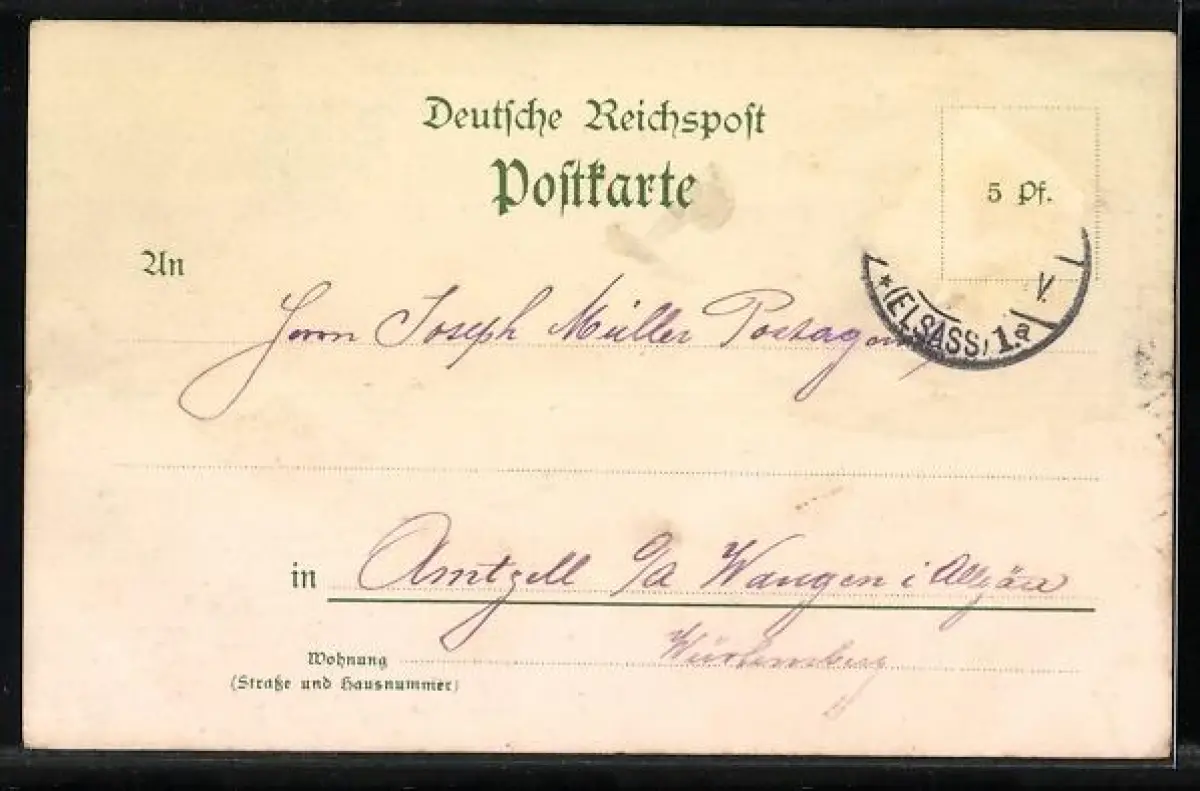 Deutsche Reichspost
Postkarte
5 Pf.
An
V.
*(ELSASS) 1.a
Herrn Joseph Müller
in Amtzell O/A Wangen i Allgäu
Wohnung Würtemberg
(Straße und Hausnummer)